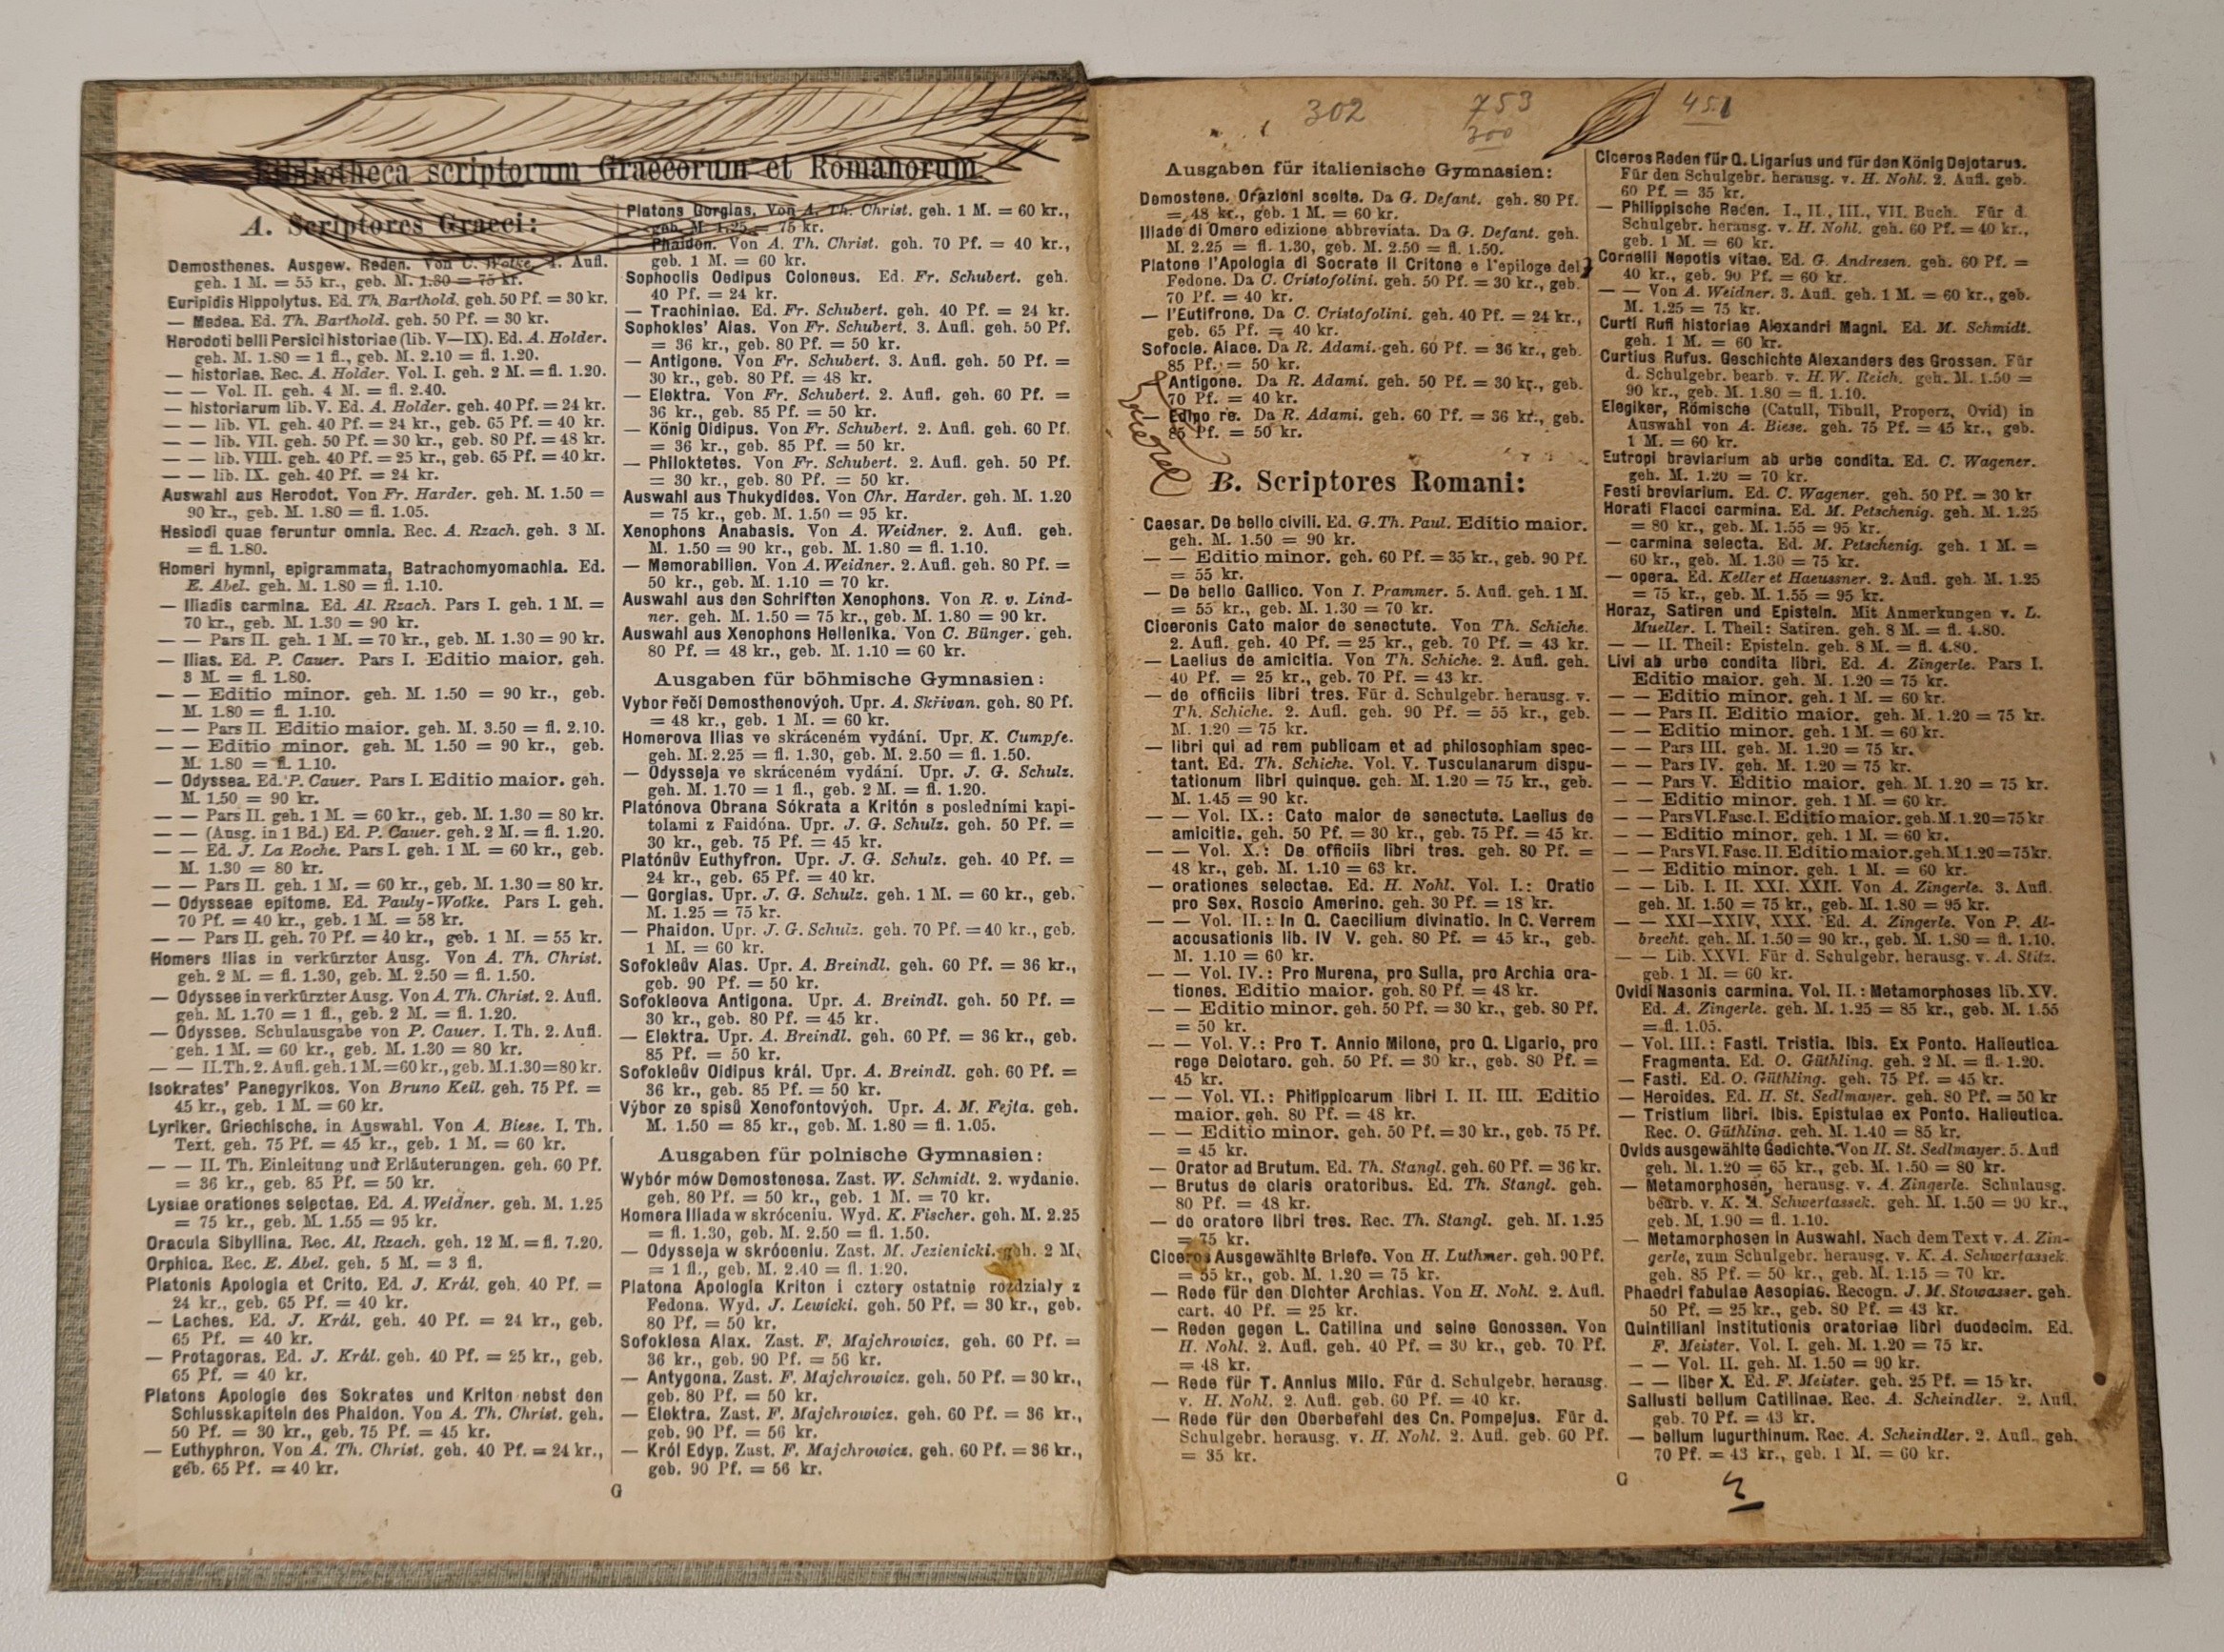 Bibliotheca scriptorum Graecorum et Romanorum
A. Scriptores Graeci:
Demosthenes. Ausgew. Reden. Von C. Wotke. 4. Aufl.
geh. 1 M. = 55 kr., geb. M. 1.30 = 75 kr.
Euripidis Hippolytus. Ed. Th. Barthold. geh. 50 Pf. = 30 kr.
— Medea. Ed. Th. Barthold. geh. 50 Pf. = 30 kr.
Herodoti belli Persici historiae (lib. V—IX). Ed. A. Holder.
geh. M. 1.80 = 1 fl., geb. M. 2.10 = fl. 1.20.
— historiae. Rec. A. Holder. Vol. I. geh. 2 M. = fl. 1.20.
— — Vol. II. geh. 4 M. = fl. 2.40.
— historiarum lib. V. Ed. A. Holder. geh. 40 Pf. = 24 kr.
— — lib. VI. geh. 40 Pf. = 24 kr., geb. 65 Pf. = 40 kr.
— — lib. VII. geh. 50 Pf. = 30 kr., geb. 80 Pf. = 48 kr.
— — lib. VIII. geh. 40 Pf. = 25 kr., geb. 65 Pf. = 40 kr.
— — lib. IX. geh. 40 Pf. = 24 kr.
Auswahl aus Herodot. Von Fr. Harder. geh. M. 1.50 =
90 kr., geb. M. 1.80 = fl. 1.05.
Hesiodi quae feruntur omnia. Rec. A. Rzach. geh. 3 M.
= fl. 1.80.
Homeri hymni, epigrammata, Batrachomyomachia. Ed.
E. Abel. geh. M. 1.80 = fl. 1.10.
— Iliadis carmina. Ed. Al. Rzach. Pars I. geh. 1 M. =
70 kr., geb. M. 1.30 = 90 kr.
— — Pars II. geh. 1 M. = 70 kr., geb. M. 1.30 = 90 kr.
— Ilias. Ed. P. Cauer. Pars I. Editio maior. geh.
3 M. = fl. 1.80.
— — Editio minor. geh. M. 1.50 = 90 kr., geb.
M. 1.80 = fl. 1.10.
— — Pars II. Editio maior. geh. M. 3.50 = fl. 2.10.
— — Editio minor. geh. M. 1.50 = 90 kr., geb.
M. 1.80 = fl. 1.10.
— Odyssea. Ed. P. Cauer. Pars I. Editio maior. geh.
M. 1.50 = 90 kr.
— — Pars II. geh. 1 M. = 60 kr., geb. M. 1.30 = 80 kr.
— — (Ausg. in 1 Bd.) Ed. P. Cauer. geh. 2 M. = fl. 1.20.
— — Ed. J. La Roche. Pars I. geh. 1 M. = 60 kr., geb.
M. 1.30 = 80 kr.
— — Pars II. geh. 1 M. = 60 kr., geb. M. 1.30 = 80 kr.
— Odysseae epitome. Ed. Pauly-Wotke. Pars I. geh.
70 Pf. = 40 kr., geb. 1 M. = 58 kr.
— — Pars II. geh. 70 Pf. = 40 kr., geb. 1 M. = 55 kr.
Homers Ilias in verkürzter Ausg. Von A. Th. Christ.
geh. 2 M. = fl. 1.30, geb. M. 2.50 = fl. 1.50.
— Odyssee in verkürzter Ausg. Von A. Th. Christ. 2. Aufl.
geh. M. 1.70 = 1 fl., geb. 2 M. = fl. 1.20.
— Odyssee. Schulausgabe von P. Cauer. I. Th. 2. Aufl.
geh. 1 M. = 60 kr., geb. M. 1.30 = 80 kr.
— — II. Th. 2. Aufl. geh. 1 M. = 60 kr., geb. M. 1.30 = 80 kr.
Isokrates' Panegyrikos. Von Bruno Keil. geh. 75 Pf. =
45 kr., geb. 1 M. = 60 kr.
Lyriker, Griechische, in Auswahl. Von A. Biese. I. Th.
Text. geh. 75 Pf. = 45 kr., geb. 1 M. = 60 kr.
— — II. Th. Einleitung und Erläuterungen. geh. 60 Pf.
= 36 kr., geb. 85 Pf. = 50 kr.
Lysiae orationes selectae. Ed. A. Weidner. geh. M. 1.25
= 75 kr., geb. M. 1.55 = 95 kr.
Oracula Sibyllina. Rec. Al. Rzach. geh. 12 M. = fl. 7.20.
Orphica. Rec. E. Abel. geh. 5 M. = 3 fl.
Platonis Apologia et Crito. Ed. J. Král. geh. 40 Pf. =
24 kr., geb. 65 Pf. = 40 kr.
— Laches. Ed. J. Král. geh. 40 Pf. = 24 kr., geb.
65 Pf. = 40 kr.
— Protagoras. Ed. J. Král. geh. 40 Pf. = 25 kr., geb.
65 Pf. = 40 kr.
Platons Apologie des Sokrates und Kriton nebst den
Schlusskapiteln des Phaidon. Von A. Th. Christ. geh.
50 Pf. = 30 kr., geb. 75 Pf. = 45 kr.
— Euthyphron. Von A. Th. Christ. geh. 40 Pf. = 24 kr.,
geb. 65 Pf. = 40 kr.
Platons Gorgias. Von A. Th. Christ. geh. 1 M. = 60 kr.,
geb. M. 1.25 = 75 kr.
Phaidon. Von A. Th. Christ. geh. 70 Pf. = 40 kr.,
geb. 1 M. = 60 kr.
Sophoclis Oedipus Coloneus. Ed. Fr. Schubert. geh.
40 Pf. = 24 kr.
— Trachiniae. Ed. Fr. Schubert. geh. 40 Pf. = 24 kr.
Sophokles' Aias. Von Fr. Schubert. 3. Aufl. geh. 50 Pf.
= 36 kr., geb. 80 Pf. = 50 kr.
— Antigone. Von Fr. Schubert. 3. Aufl. geh. 50 Pf. =
30 kr., geb. 80 Pf. = 48 kr.
— Elektra. Von Fr. Schubert. 2. Aufl. geh. 60 Pf. =
36 kr., geb. 85 Pf. = 50 kr.
— König Oidipus. Von Fr. Schubert. 2. Aufl. geh. 60 Pf.
= 36 kr., geb. 85 Pf. = 50 kr.
— Philoktetes. Von Fr. Schubert. 2. Aufl. geh. 50 Pf.
= 30 kr., geb. 80 Pf. = 50 kr.
Auswahl aus Thukydides. Von Chr. Harder. geh. M. 1.20
= 75 kr., geb. M. 1.50 = 95 kr.
Xenophons Anabasis. Von A. Weidner. 2. Aufl. geh.
M. 1.50 = 90 kr., geb. M. 1.80 = fl. 1.10.
— Memorabilien. Von A. Weidner. 2. Aufl. geh. 80 Pf. =
50 kr., geb. M. 1.10 = 70 kr.
Auswahl aus den Schriften Xenophons. Von R. v. Lind-
ner. geh. M. 1.50 = 75 kr., geb. M. 1.80 = 90 kr.
Auswahl aus Xenophons Hellenika. Von C. Bünger. geh.
80 Pf. = 48 kr., geb. M. 1.10 = 60 kr.
Ausgaben für böhmische Gymnasien:
Vybor řečí Demosthenových. Upr. A. Skřivan. geh. 80 Pf.
= 48 kr., geb. 1 M. = 60 kr.
Homerova Ilias ve skráceném vydání. Upr. K. Cumpfe.
geh. M. 2.25 = fl. 1.30, geb. M. 2.50 = fl. 1.50.
— Odysseja ve skráceném vydání. Upr. J. G. Schulz.
geh. M. 1.70 = 1 fl., geb. 2 M. = fl. 1.20.
Platónova Obrana Sókrata a Kritón s posledními kapi-
tolami z Faidóna. Upr. J. G. Schulz. geh. 50 Pf. =
30 kr., geb. 75 Pf. = 45 kr.
Platónův Euthyfron. Upr. J. G. Schulz. geh. 40 Pf. =
24 kr., geb. 65 Pf. = 40 kr.
— Gorgias. Upr. J. G. Schulz. geh. 1 M. = 60 kr., geb.
M. 1.25 = 75 kr.
— Phaidon. Upr. J. G. Schulz. geh. 70 Pf. = 40 kr., geb.
1 M. = 60 kr.
Sofokleův Aias. Upr. A. Breindl. geh. 60 Pf. = 36 kr.,
geb. 90 Pf. = 50 kr.
Sofokleova Antigona. Upr. A. Breindl. geh. 50 Pf. =
30 kr., geb. 80 Pf. = 45 kr.
— Elektra. Upr. A. Breindl. geh. 60 Pf. = 36 kr., geb.
85 Pf. = 50 kr.
Sofokleův Oidipus král. Upr. A. Breindl. geh. 60 Pf. =
36 kr., geb. 85 Pf. = 50 kr.
Výbor ze spisů Xenofontových. Upr. A. M. Fejta. geh.
M. 1.50 = 85 kr., geb. M. 1.80 = fl. 1.05.
Ausgaben für polnische Gymnasien:
Wybór mów Demostenesa. Zast. W. Schmidt. 2. wydanie.
geh. 80 Pf. = 50 kr., geb. 1 M. = 70 kr.
Homera Iliada w skróceniu. Wyd. K. Fischer. geh. M. 2.25
= fl. 1.30, geb. M. 2.50 = fl. 1.50.
— Odysseja w skróceniu. Zast. M. Jezienicki. geh. 2 M.
= 1 fl., geb. M. 2.40 = fl. 1.20.
Platona Apologia Kriton i cztery ostatnie rozdziały z
Fedona. Wyd. J. Lewicki. geh. 50 Pf. = 30 kr., geb.
80 Pf. = 50 kr.
Sofoklesa Aiax. Zast. F. Majchrowicz. geh. 60 Pf. =
36 kr., geb. 90 Pf. = 56 kr.
— Antygona. Zast. F. Majchrowicz. geh. 50 Pf. = 30 kr.,
geb. 80 Pf. = 50 kr.
— Elektra. Zast. F. Majchrowicz. geh. 60 Pf. = 36 kr.,
geb. 90 Pf. = 56 kr.
— Król Edyp. Zast. F. Majchrowicz. geh. 60 Pf. = 36 kr.,
geb. 90 Pf. = 56 kr.
G
302 753 451
300
Ausgaben für italienische Gymnasien:
Demostene. Orazioni scelte. Da G. Defant. geh. 80 Pf.
= 48 kr., geb. 1 M. = 60 kr.
Iliade di Omero edizione abbreviata. Da G. Defant. geh.
M. 2.25 = fl. 1.30, geb. M. 2.50 = fl. 1.50.
Platone l'Apologia di Socrate il Critone e l'epiloge del
Fedone. Da C. Cristofolini. geh. 50 Pf. = 30 kr., geb.
70 Pf. = 40 kr.
— l'Eutifrone. Da C. Cristofolini. geh. 40 Pf. = 24 kr.,
geb. 65 Pf. = 40 kr.
Sofocle. Aiace. Da R. Adami. geh. 60 Pf. = 36 kr., geb.
85 Pf. = 50 kr.
Antigone. Da R. Adami. geh. 50 Pf. = 30 kr., geb.
70 Pf. = 40 kr.
— Edipo re. Da R. Adami. geh. 60 Pf. = 36 kr., geb.
85 Pf. = 50 kr.
B. Scriptores Romani:
Caesar. De bello civili. Ed. G. Th. Paul. Editio maior.
geh. M. 1.50 = 90 kr.
— — Editio minor. geh. 60 Pf. = 35 kr., geb. 90 Pf.
= 55 kr.
— De bello Gallico. Von I. Prammer. 5. Aufl. geh. 1 M.
= 55 kr., geb. M. 1.30 = 70 kr.
Ciceronis Cato maior de senectute. Von Th. Schiche.
2. Aufl. geh. 40 Pf. = 25 kr., geb. 70 Pf. = 43 kr.
— Laelius de amicitia. Von Th. Schiche. 2. Aufl. geh.
40 Pf. = 25 kr., geb. 70 Pf. = 43 kr.
— de officiis libri tres. Für d. Schulgebr. herausg. v.
Th. Schiche. 2. Aufl. geh. 90 Pf. = 55 kr., geb.
M. 1.20 = 75 kr.
— libri qui ad rem publicam et ad philosophiam spec-
tant. Ed. Th. Schiche. Vol. V. Tusculanarum dispu-
tationum libri quinque. geh. M. 1.20 = 75 kr., geb.
M. 1.45 = 90 kr.
— — Vol. IX.: Cato maior de senectute. Laelius de
amicitia. geh. 50 Pf. = 30 kr., geb. 75 Pf. = 45 kr.
— — Vol. X.: De officiis libri tres. geh. 80 Pf. =
48 kr., geb. M. 1.10 = 63 kr.
— orationes selectae. Ed. H. Nohl. Vol. I.: Oratio
pro Sex. Roscio Amerino. geh. 30 Pf. = 18 kr.
— — Vol. II.: In Q. Caecilium divinatio. In C. Verrem
accusationis lib. IV V. geh. 80 Pf. = 45 kr., geb.
M. 1.10 = 60 kr.
— — Vol. IV.: Pro Murena, pro Sulla, pro Archia ora-
tiones. Editio maior. geh. 80 Pf. = 48 kr.
— — Editio minor. geh. 50 Pf. = 30 kr., geb. 80 Pf.
= 50 kr.
— — Vol. V.: Pro T. Annio Milone, pro Q. Ligario, pro
rege Deiotaro. geh. 50 Pf. = 30 kr., geb. 80 Pf. =
45 kr.
— — Vol. VI.: Philippicarum libri I. II. III. Editio
maior. geh. 80 Pf. = 48 kr.
— — Editio minor. geh. 50 Pf. = 30 kr., geb. 75 Pf.
= 45 kr.
— Orator ad Brutum. Ed. Th. Stangl. geh. 60 Pf. = 36 kr.
— Brutus de claris oratoribus. Ed. Th. Stangl. geh.
80 Pf. = 48 kr.
— de oratore libri tres. Rec. Th. Stangl. geh. M. 1.25
= 75 kr.
Ciceros Ausgewählte Briefe. Von H. Luthmer. geh. 90 Pf.
= 55 kr., geb. M. 1.20 = 75 kr.
— Rede für den Dichter Archias. Von H. Nohl. 2. Aufl.
cart. 40 Pf. = 25 kr.
— Reden gegen L. Catilina und seine Genossen. Von
H. Nohl. 2. Aufl. geh. 40 Pf. = 30 kr., geb. 70 Pf.
= 48 kr.
— Rede für T. Annius Milo. Für d. Schulgebr. herausg.
v. H. Nohl. 2. Aufl. geb. 60 Pf. = 40 kr.
— Rede für den Oberbefehl des Cn. Pompejus. Für d.
Schulgebr. herausg. v. H. Nohl. 2. Aufl. geb. 60 Pf.
= 35 kr.
Ciceros Reden für Q. Ligarius und für den König Dejotarus.
Für den Schulgebr. herausg. v. H. Nohl. 2. Aufl. geb.
60 Pf. = 35 kr.
— Philippische Reden. I., II., III., VII. Buch. Für d.
Schulgebr. herausg. v. H. Nohl. geh. 60 Pf. = 40 kr.,
geb. 1 M. = 60 kr.
Cornelii Nepotis vitae. Ed. G. Andresen. geh. 60 Pf. =
40 kr., geb. 90 Pf. = 60 kr.
— — Von A. Weidner. 3. Aufl. geh. 1 M. = 60 kr., geb.
M. 1.25 = 75 kr.
Curti Rufi historiae Alexandri Magni. Ed. M. Schmidt.
geh. 1 M. = 60 kr.
Curtius Rufus. Geschichte Alexanders des Grossen. Für
d. Schulgebr. bearb. v. H. W. Reich. geh. M. 1.50 =
90 kr., geb. M. 1.80 = fl. 1.10.
Elegiker, Römische (Catull, Tibull, Properz, Ovid) in
Auswahl von A. Biese. geh. 75 Pf. = 45 kr., geb.
1 M. = 60 kr.
Eutropi breviarium ab urbe condita. Ed. C. Wagener.
geh. M. 1.20 = 70 kr.
Festi breviarium. Ed. C. Wagener. geh. 50 Pf. = 30 kr
Horati Flacci carmina. Ed. M. Petschenig. geh. M. 1.25
= 80 kr., geb. M. 1.55 = 95 kr.
— carmina selecta. Ed. M. Petschenig. geh. 1 M. =
60 kr., geb. M. 1.30 = 75 kr.
— opera. Ed. Keller et Haeussner. 2. Aufl. geh. M. 1.25
= 75 kr., geb. M. 1.55 = 95 kr.
Horaz, Satiren und Episteln. Mit Anmerkungen v. L.
Mueller. I. Theil: Satiren. geh. 8 M. = fl. 4.80.
— — II. Theil: Episteln. geh. 8 M. = fl. 4.80.
Livi ab urbe condita libri. Ed. A. Zingerle. Pars I.
Editio maior. geh. M. 1.20 = 75 kr.
— — Editio minor. geh. 1 M. = 60 kr.
— — Pars II. Editio maior. geh. M. 1.20 = 75 kr.
— — Editio minor. geh. 1 M. = 60 kr.
— — Pars III. geh. M. 1.20 = 75 kr.
— — Pars IV. geh. M. 1.20 = 75 kr.
— — Pars V. Editio maior. geh. M. 1.20 = 75 kr.
— — Editio minor. geh. 1 M. = 60 kr.
— — Pars VI. Fasc. I. Editio maior. geh. M. 1.20 = 75 kr
— — Editio minor. geh. 1 M. = 60 kr.
— — Pars VI. Fasc. II. Editio maior. geh. M. 1.20 = 75 kr.
— — Editio minor. geh. 1 M. = 60 kr.
— — Lib. I. II. XXI. XXII. Von A. Zingerle. 3. Aufl.
geh. M. 1.50 = 75 kr., geb. M. 1.80 = 95 kr.
— — XXI—XXIV, XXX. Ed. A. Zingerle. Von P. Al-
brecht. geh. M. 1.50 = 90 kr., geb. M. 1.80 = fl. 1.10.
— — Lib. XXVI. Für d. Schulgebr. herausg. v. A. Stitz.
geb. 1 M. = 60 kr.
Ovidi Nasonis carmina. Vol. II.: Metamorphoses lib. XV.
Ed. A. Zingerle. geh. M. 1.25 = 85 kr., geb. M. 1.55
= fl. 1.05.
— Vol. III.: Fasti. Tristia. Ibis. Ex Ponto. Halieutica.
Fragmenta. Ed. O. Güthling. geh. 2 M. = fl. 1.20.
— Fasti. Ed. O. Güthling. geh. 75 Pf. = 45 kr.
— Heroides. Ed. H. St. Sedlmayer. geh. 80 Pf. = 50 kr
— Tristium libri. Ibis. Epistulae ex Ponto. Halieutica.
Rec. O. Güthling. geh. M. 1.40 = 85 kr.
Ovids ausgewählte Gedichte. Von H. St. Sedlmayer. 5. Aufl
geh. M. 1.20 = 65 kr., geb. M. 1.50 = 80 kr.
— Metamorphosen, herausg. v. A. Zingerle. Schulausg.
bearb. v. K. A. Schwertassek. geh. M. 1.50 = 90 kr.,
geb. M. 1.90 = fl. 1.10.
— Metamorphosen in Auswahl. Nach dem Text v. A. Zin-
gerle, zum Schulgebr. herausg. v. K. A. Schwertassek.
geh. 85 Pf. = 50 kr., geb. M. 1.15 = 70 kr.
Phaedri fabulae Aesopiae. Recogn. J. M. Stowasser. geh.
50 Pf. = 25 kr., geb. 80 Pf. = 43 kr.
Quintiliani institutionis oratoriae libri duodecim. Ed.
F. Meister. Vol. I. geh. M. 1.20 = 75 kr.
— — Vol. II. geh. M. 1.50 = 90 kr.
— — liber X. Ed. F. Meister. geh. 25 Pf. = 15 kr.
Sallusti bellum Catilinae. Rec. A. Scheindler. 2. Aufl.
geb. 70 Pf. = 43 kr.
— bellum Iugurthinum. Rec. A. Scheindler. 2. Aufl. geh.
70 Pf. = 43 kr., geb. 1 M. = 60 kr.
G